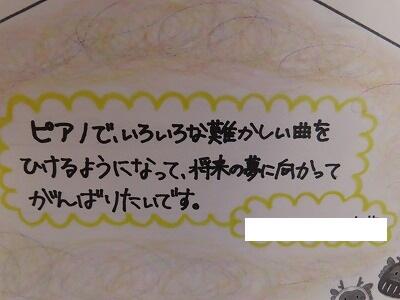 ピアノで、いろいろな難かしい曲を
ひけるようになって、将来の夢に向かって
がんばりたいです。